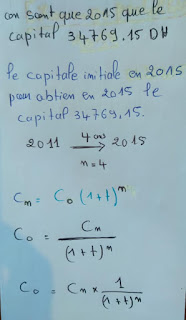 on sont que 2015 que le
capital 34769.15 DH
le capitale initiale en 2015
pour abtien en 2015 le
capital 34769,15.
2011 4 ans → 2015
n = 4
Cn = C0 (1+t)^n
C0 = Cn / (1+t)^n
C0 = Cn × 1 / (1+t)^n